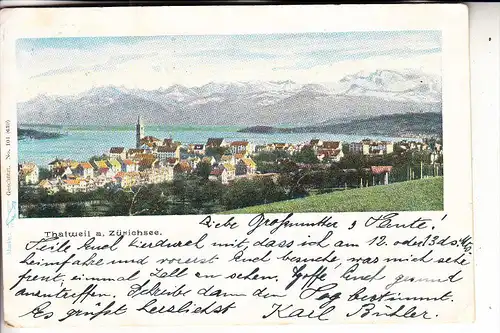 Thalweil a. Zürichsee.
Liebe Grossmutter & Tante!
Teile Euch hierdurch mit, dass ich am 12. oder 13. ds. Mts.
heimfahre und vorerst Euch besuche was mich sehr
freut, einmal Zell zu sehen. Hoffe Euch gesund
anzutreffen. Schreibe dann den Tag bestimmt.
Es grüsst herzlichst Karl Bühler.
Guggenheim, No. 104